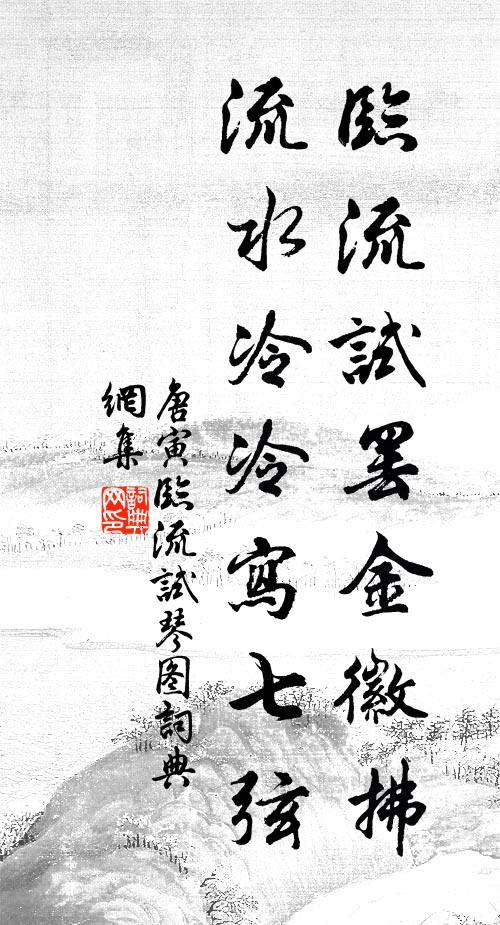 臨流試罢金徽拂
流水冷冷寫七弦
唐寅臨流試琴图詞典
網集
詞典
网印